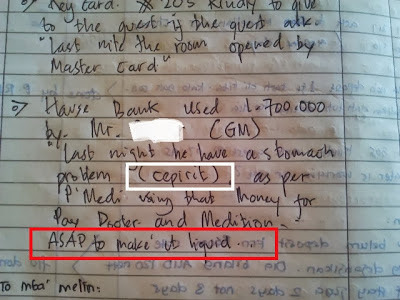 o) Key card. # 203 Kindly to give
to the guest if the guest ask
"Last nite the room opened by
Master card"
o) House Bank used 1.700.000
by. Mr. (GM)
"Last night he have a stomach
problem "(cepirit), as per
P'Medi using that money for
Pay Docter and Medition.
ASAP to make it liquid.
To mba' melin: